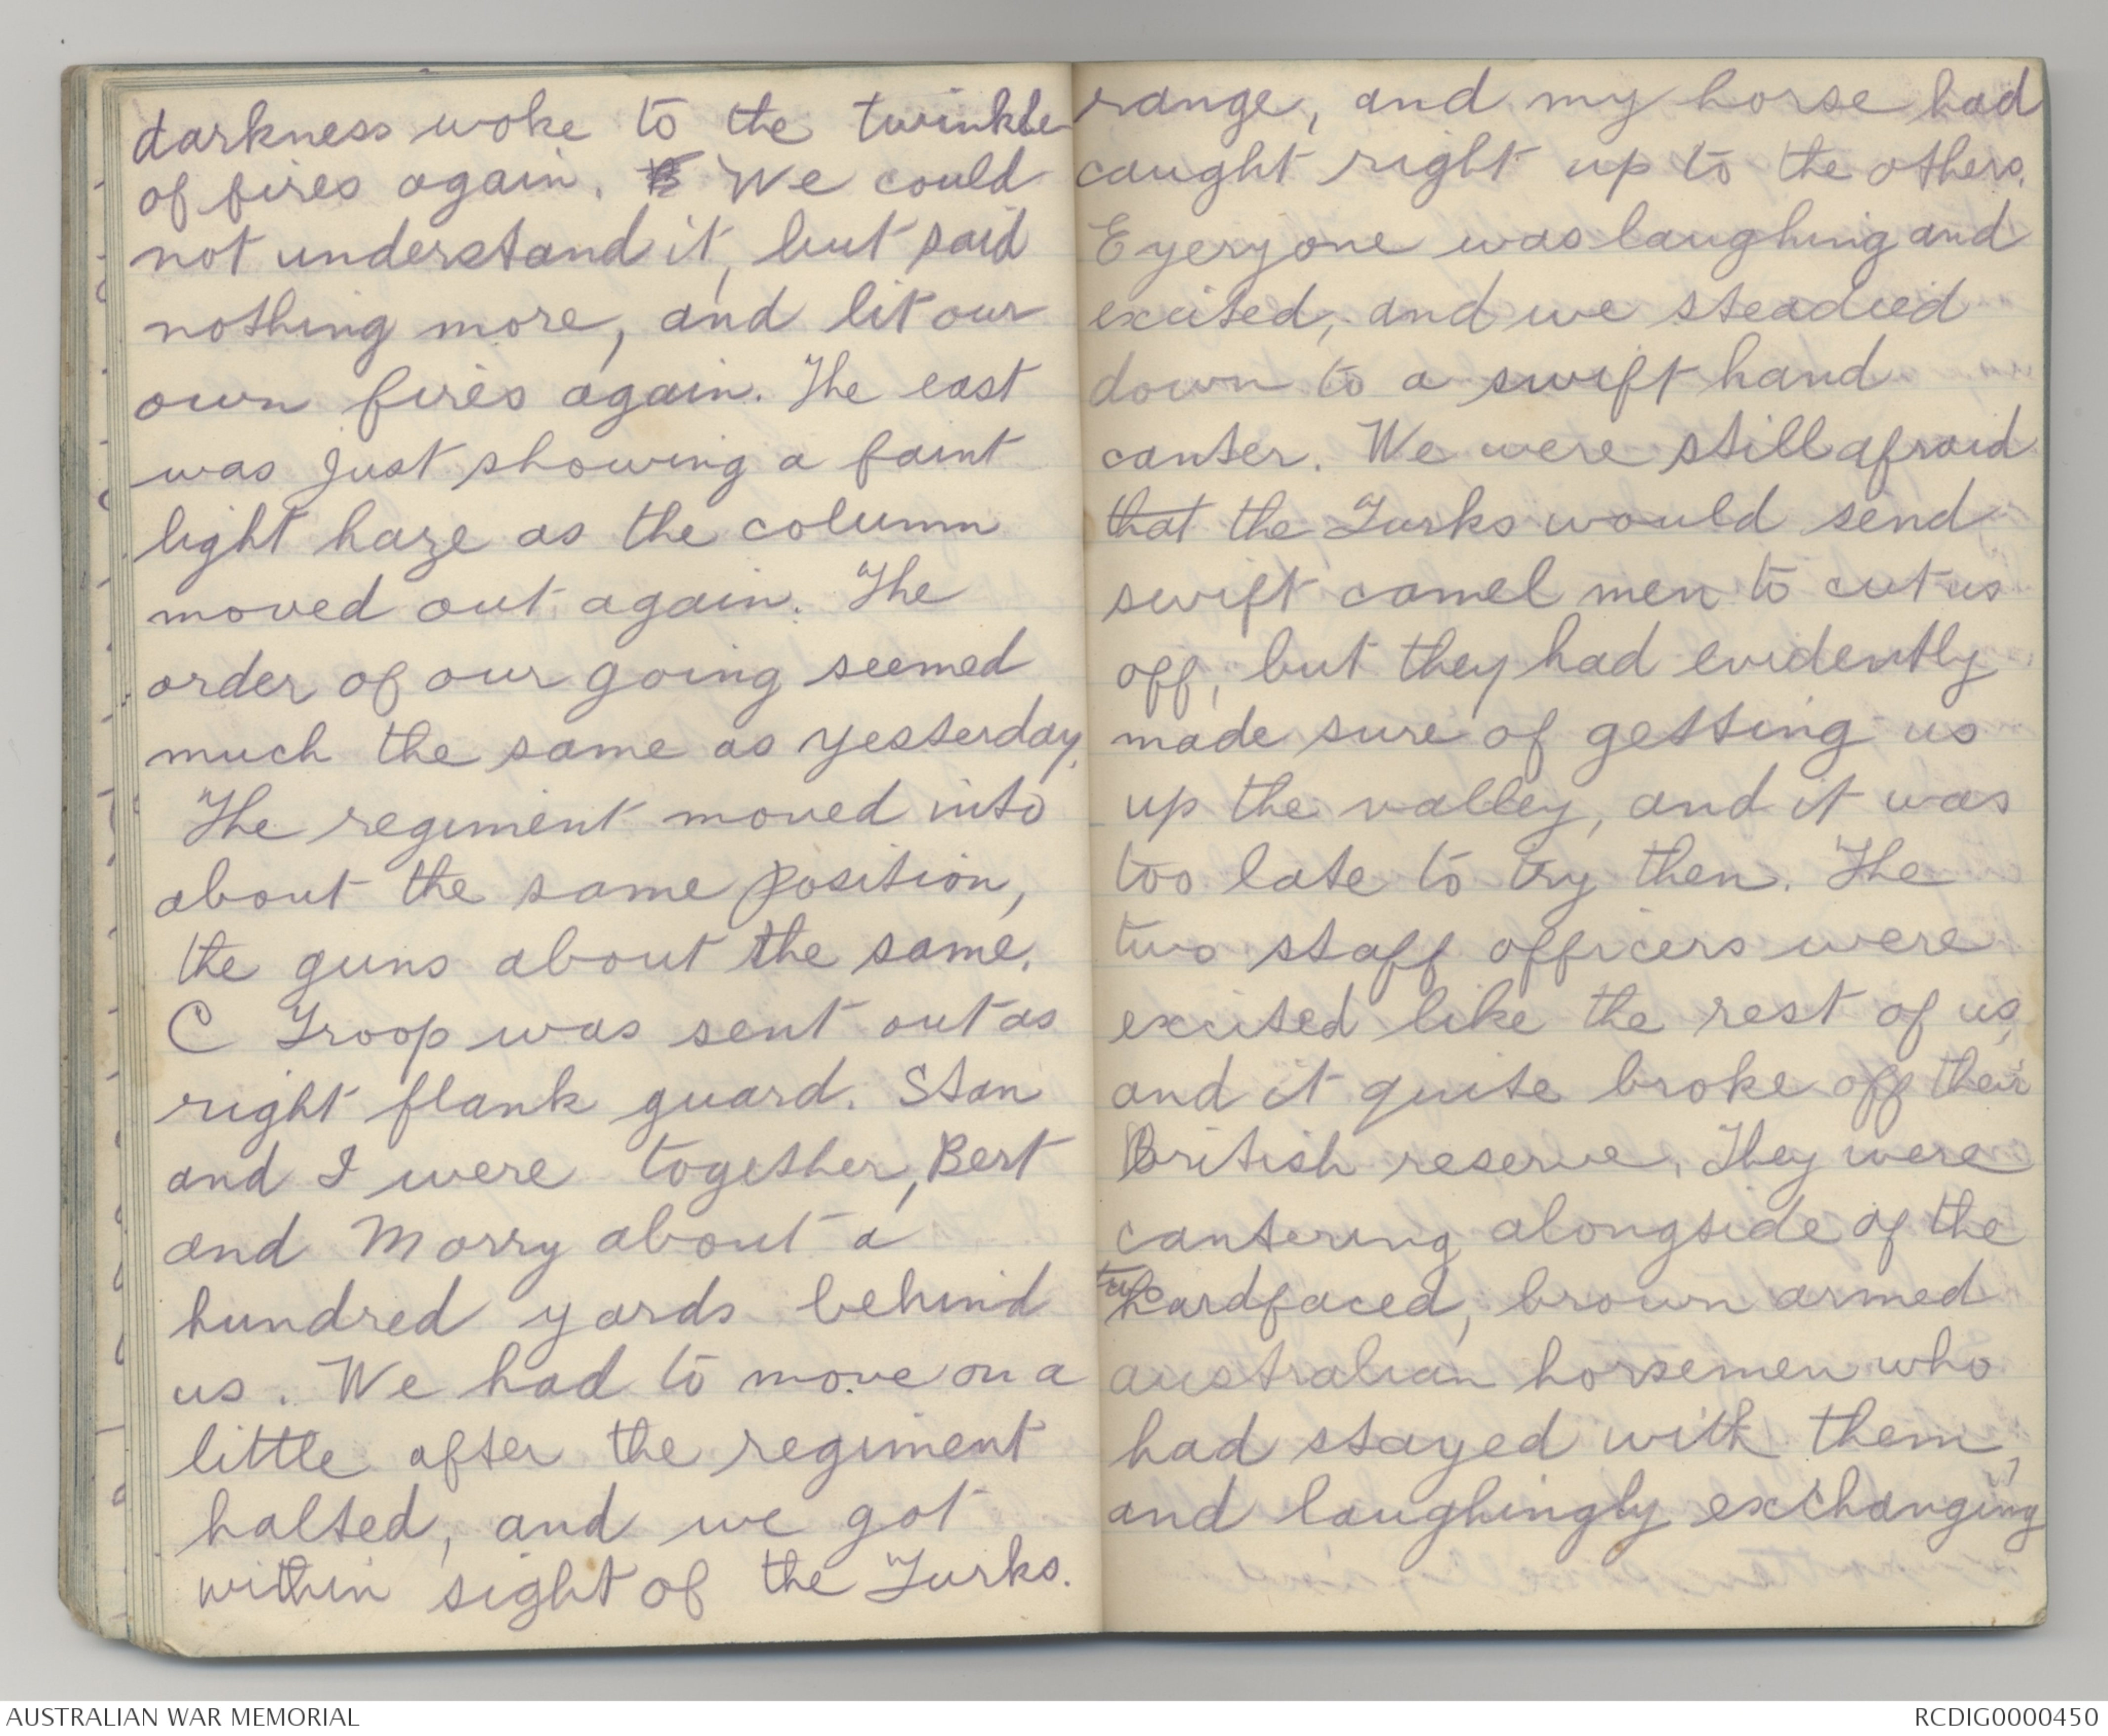 darkness woke to the twinkle
of fires again. We could
not understand it, but said
nothing more, and lit our
own fires again. The east
was just showing a faint
light haze as the column
moved out again. The
order of our going seemed
much the same as yesterday.
The regiment moved into
about the same position,
the guns about the same.
C Troop was sent out as
right flank guard. Stan
and I were together, Bert
and Morry about a
hundred yards behind
us. We had to move on a
little after the regiment
halted, and we got
within sight of the Turks.
range, and my horse had
caught right up to the others.
Eyeryone was laughing and
excited, and we steadied
down to a swift hand
canter. We were still afraid
that the Turks would send
swift camel men to cut us
off, but they had evidently
made sure of getting us
up the valley, and it was
too late to try then. The
two staff officers were
excited like the rest of us,
and it quite broke off their
British reserve. They were
cantering alongside of the
two hardfaced, brown armed
australian horsemen who
had stayed with them,
and laughingly exchanging
AUSTRALIAN WAR MEMORIAL
RCDIG0000450